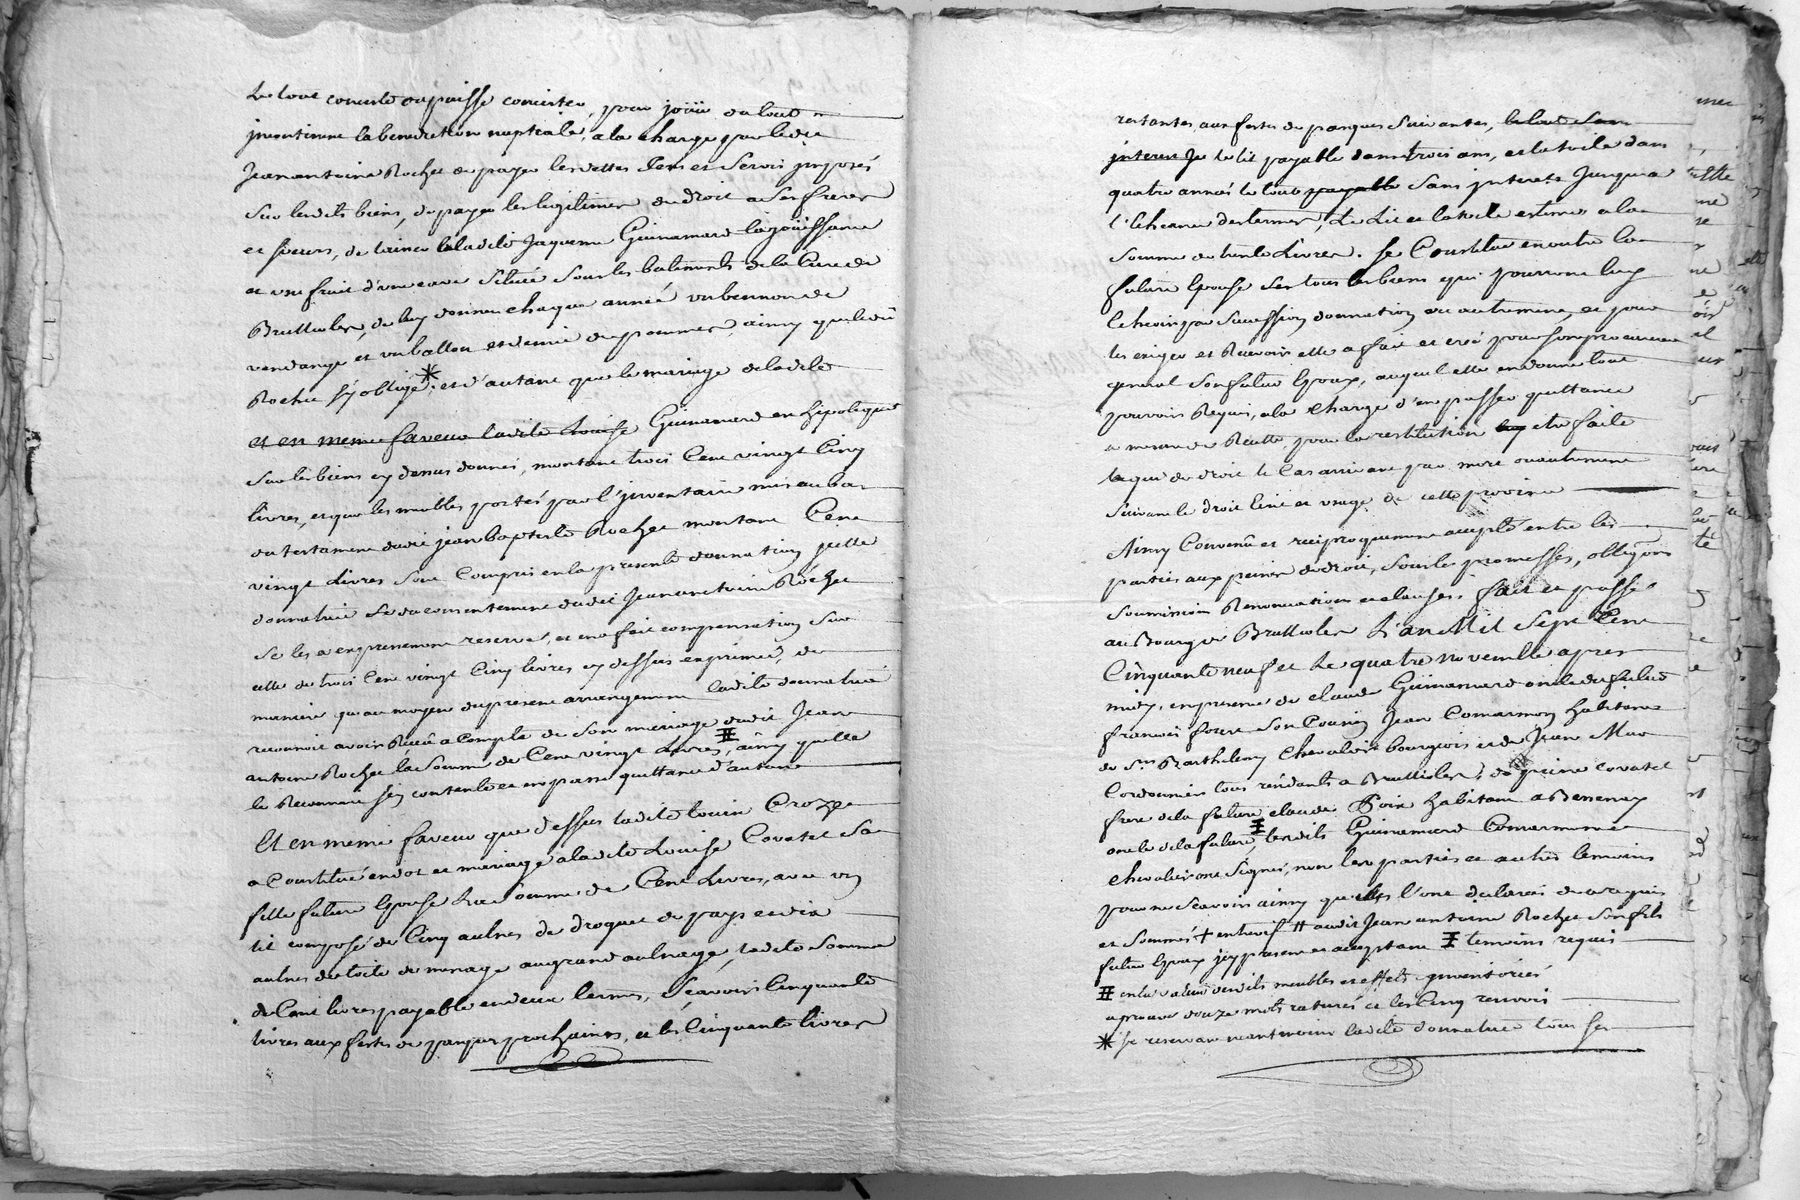 Le tout consiste ou puisse consister, pour joüir du tout
incontinent la benediction nuptiale, a la charge par ledit
Jean antoine Rochet de payer les dettes Cens et Servis imposés
Sur lesdits biens, de payer les legitimes de droit a Ses freres
et soeurs, de laisser a ladite Jaqueme Guinamard la joüissance
et usufruit d'une cave Scituée Sous les batiments de la Cure de
Brullioles, de luy donner chaque année un bennon de
vendange et un ballon et demie de pommes, ainsy que ledit
Rochet s'y oblige; * et d'autant que le mariage de ladite
et en meme faveur ladite Louise Guinamard en hipoteque
Sur les biens cy dessus donnés, montant trois Cent vingt Cinq
livres, et que les meubles portés par l'inventaire mis au bas
du testament dudit jean baptiste Rochet montant Cent
vingt Livres Sont Compris en la presente donnation qu'elle
donnatrice Se du consentement dudit Jean antoine Rochet
Se les a expressement reservé, et en a fait compensation Sur
celle de trois Cent vingt Cinq livres cy dessus exprimée, de
maniere qu'au moyen du present arrangement ladite donnatrice
reconnoit avoir Receu a compte de Son mariage dudit Jean
antoine Rochet la Somme de Cent vingt Livres, ainsy qu'elle
le Reconnoit s'en contente et en passe quittance d'autant
Et en meme faveur que dessus ladite Crozet
a Constitué en dot et mariage a ladite Louise Covatet Sa
fille future Epouse La Somme de Cent Livres, avec un
lit composé de Cinq aulnes de droguet de pays et dix
aulnes de toile de menage au grand aulnage, ladite Somme
de Cent livres payable en deux termes, Sçavoir Cinquante
livres aux festes de paques prochaines, et les Cinquante livres
restantes aux festes de paques Suivantes, le tout Sans
interest Je le lit payable dans trois ans, et la toile dans
quatre années le tout payable Sans interets Jusqu'a
l'Echeance des termes, Le Lit et la toile estimés a la
Somme de trente Livres. Se Constitue en outre la
future Epouse Ses tous les biens qui pourront luy
Echeoir par Succession donnation ou autrement, et pour
les exiger et Recevoir elle a fait et créé pour Son procureur
general Son futur Epoux, auquel elle en donne tout
pouvoir Requis, a la Charge d'en passer quittance
a mesure de Recette pour la restitution en etre faite
a qui de droit le Cas arrivant par mort ou autrement
Suivant le droit Ecrit et usage de cette province
Ainsy Convenu et reciproquement accepté entre les
parties aux peines de droit, Sous les promesses, obligõns
Soumissions Renonciations et clauses. fait et passé
au Bourg de Brullioles L'an Mil Sept Cent
Cinquante neuf et Le quatre novembre apres
midy, en presence de claude Guinamard oncle du futur
françois Son Cousin Jean Comarmon habitans
de Sr. Barthelemy Chevalier bourgeois et de Jean
Cordonnier tous residants a Brullioles, de Covatet
frere de la future claude habitant a Bessenay
oncle de la future, lesdits Guinamard Comarmon et
Chevalier ont Signés, non les parties et autres temoins
pour ne Sçavoir ainsy qu'elles l'ont declarés de ce requis
et Sommés + audit Jean antoine Rochet Son fils
futur Epoux icy present et acceptant ‡ temoins requis
en la valeur desdits meubles et effets inventoriés
aprouvé douze mots raturés et les Cinq renvois
* Se reservant neantmoins ladite donnatrice tous Ses